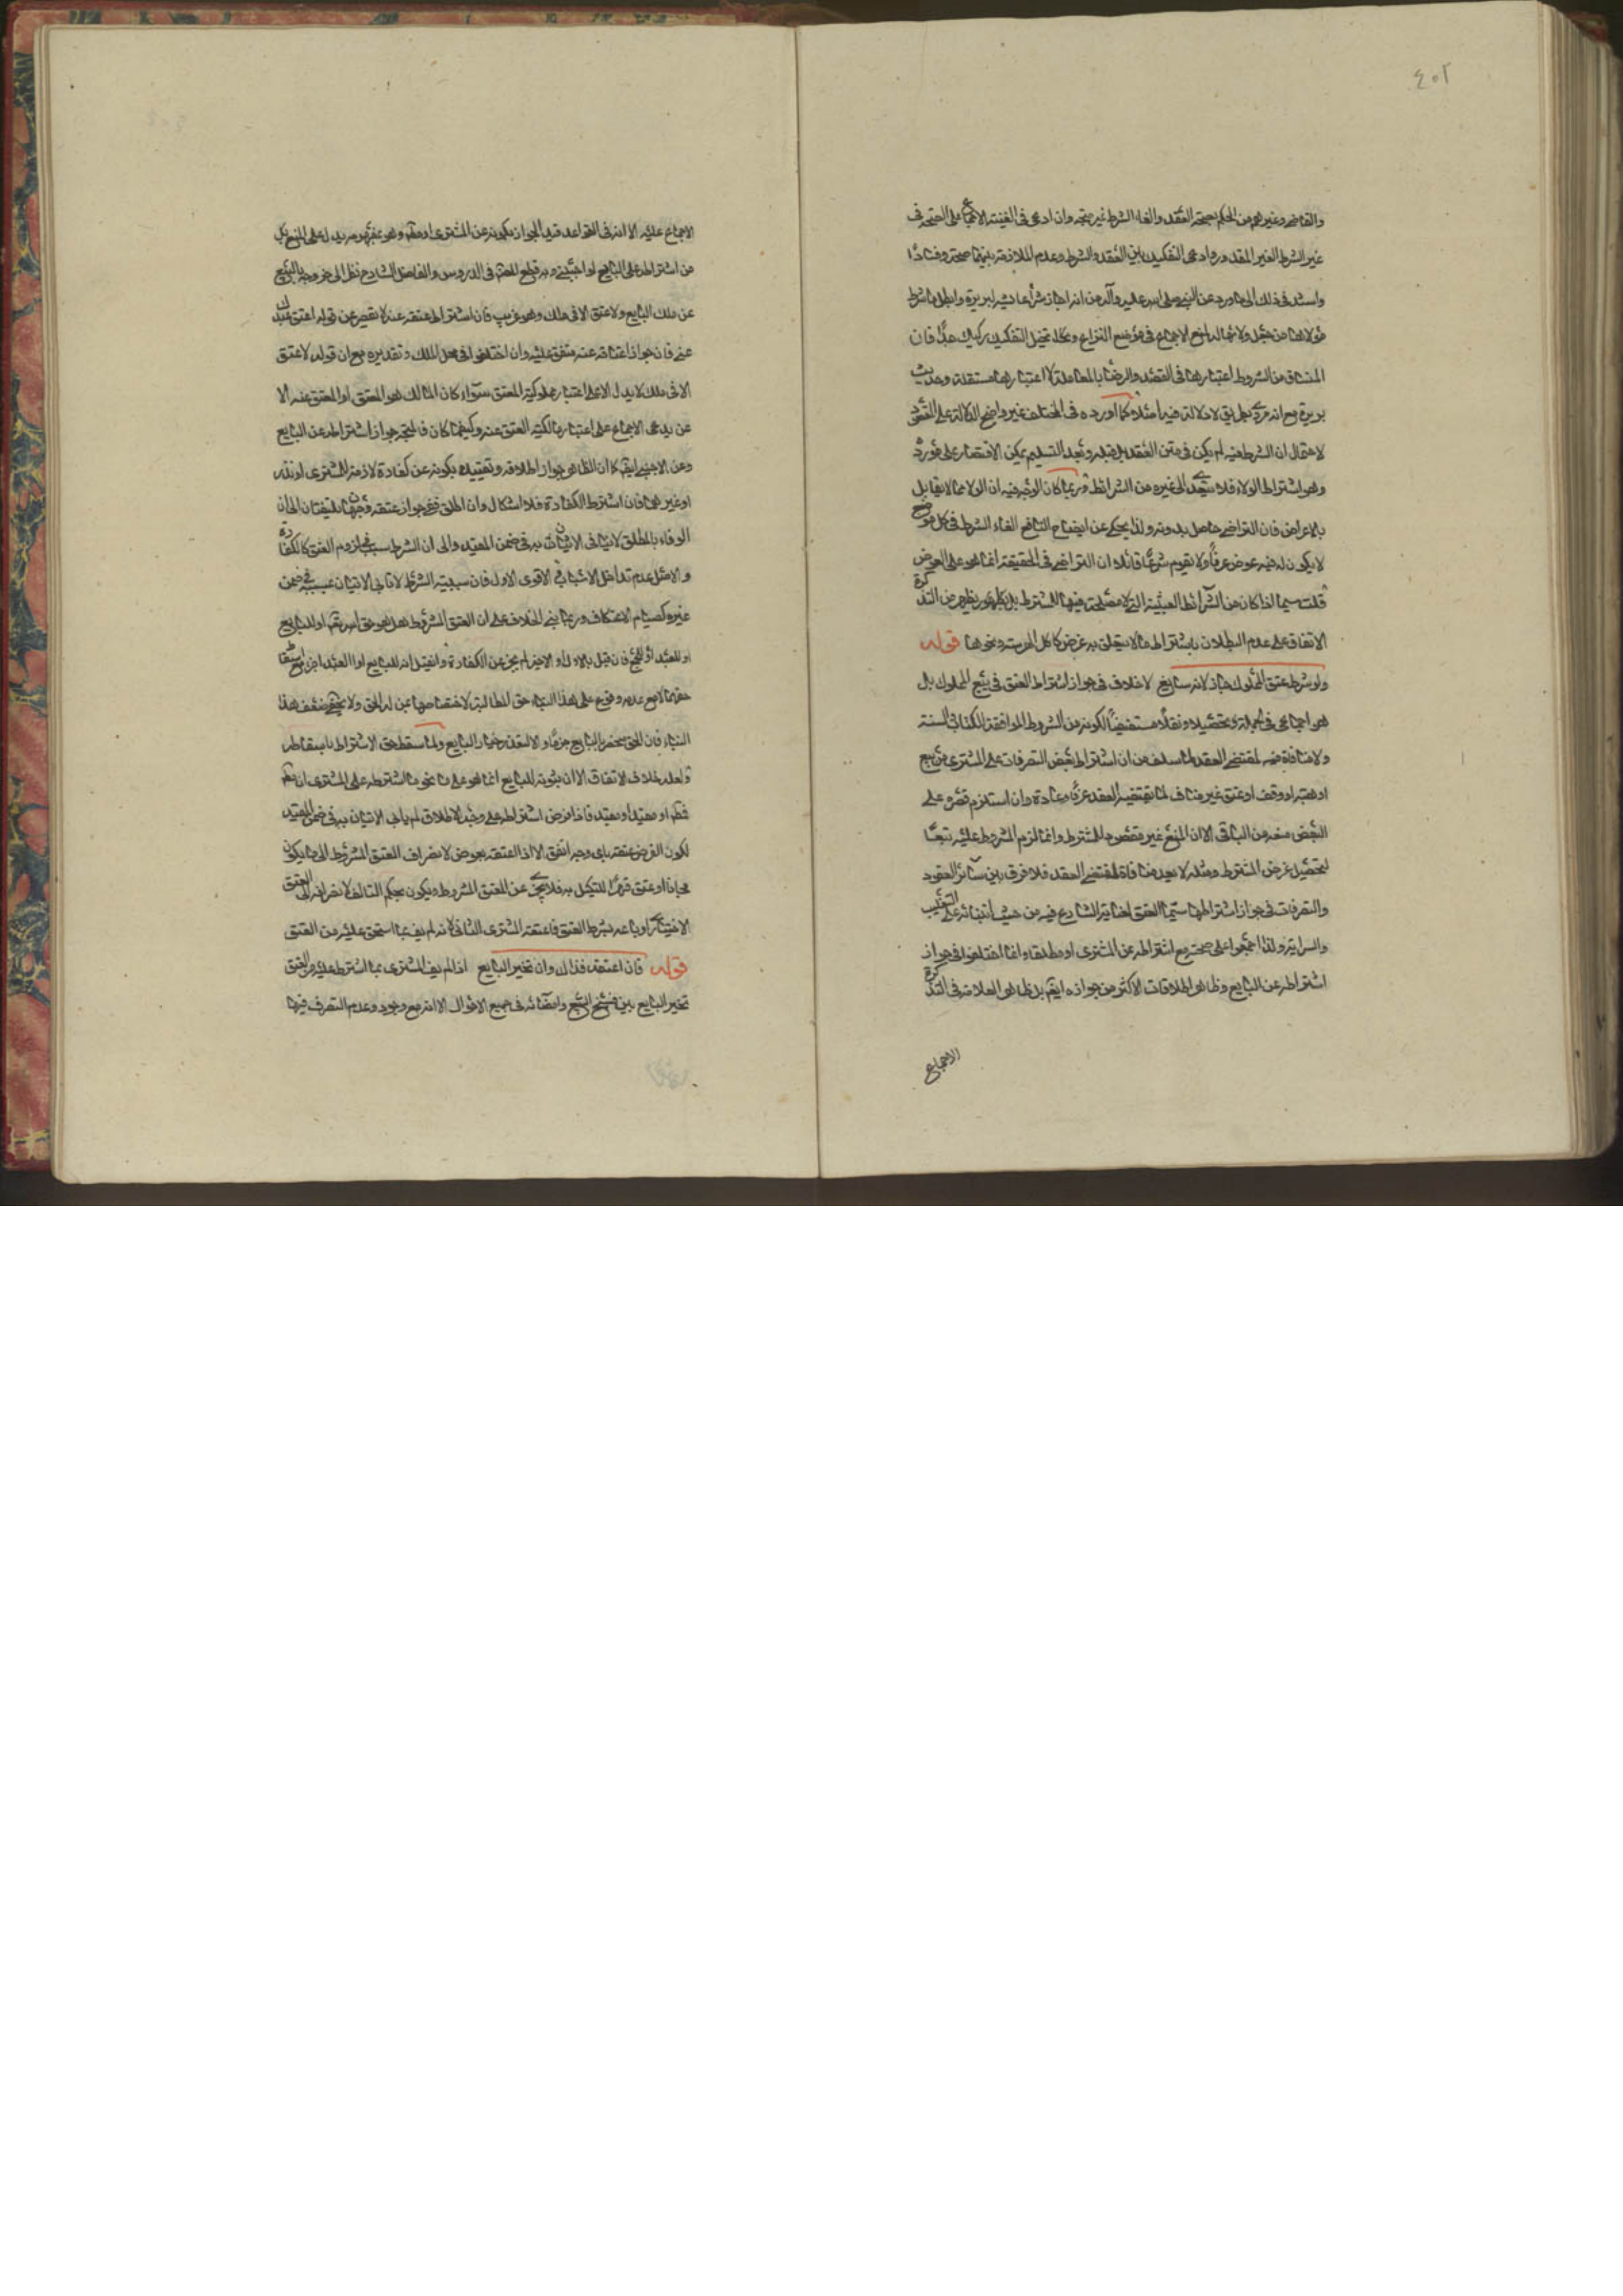 ٤٠٢
والقاضي وغيرهم من الحكم بصحة العقد والغاء الشرط غير متجه وان ادعى في الغنية الاجماع على الصحة في
غير الشرط الغير المقدور وادعى التفكيك بين العقد والشرط وعدم الملازمة بينهما صحة وفسادا
واستند في ذلك الى ما ورد عن النبي صلى الله عليه وآله من انه اجاز شراء عايشة لبريرة وابطل ما شرط
مولاها من جعل ولائها له لمنع الاجماع في موضع النزاع وتخيل التفكيك ركيك جدا فان
المنساق من الشروط اعتبارها في القصد والرضا بالمعاملة لا اعتبارها مستقلة وحديث
بريرة مع انه مروي بطريق لا دلالة فيه اصلا كما اورده في المختلف غير واضح الدلالة على المقصود
لاحتمال ان الشرط فيه لم يكن في متن العقد بل قبله وبعد التسليم يمكن الاقتصار على مورده
وهو اشتراط الولاء فلا يتعدى الى غيره من الشرائط وربما كان الوجه فيه ان الولاء مما لا يقابل
بالاعراض فان التراضي حاصل بدونه ولذا يحكى عن ايضاح النافع الغاء الشرط في كل موضع
لا يكون له فيه عوض عرفا ولا تقويم شرعا قائلا ان التراضي في الحقيقة انما هو على العوض
قلت سيما اذا كان من الشرائط العبثية التي لا مصلحة فيها للمشترط بل يظهر من التذكرة
الاتفاق على عدم البطلان باشتراط ما لا يتعلق به غرض كاكل الهريسة ونحوها قوله
ولو شرط عتق المملوك جاز لانه سايغ لا خلاف في جواز اشتراط العتق في بيع المملوك بل
هو اجماعي في الجملة تحصيلا ونقلا مستفيضا لكونه من الشروط الموافقة للكتاب والسنة
ولا منافاة فيه لمقتضى العقد لما سلف من ان اشتراط بعض التصرفات على المشتري من بيع
او هبة او وقف او عتق غير مناف لما يقتضيه العقد عرفا وعادة وان استلزم قصره على
البعض منعه من الباقي الا ان المنع غير مقصود للمشترط وانما لزم المشروط عليه تبعا
لتحصيل غرض المشترط ومثله لا يعد منافاة لمقتضى العقد فلا فرق بين سائر العقود
والتصرفات في جواز اشتراطها سيما العتق لعناية الشارع فيه من حيث ابتنائه على التغليب
والسراية ولذا اجمعوا على صحته مع اشتراطه عن المشتري او مطلقا وانما اختلفوا في جواز
اشتراطه عن البايع وظاهر اطلاقات الاكثر من جوازه ايضا بل ظاهر العلامة في التذكرة
الاجماع
الاجماع عليه الا انه في القواعد قيد الجواز بكونه عن المشتري او مطلقا وهو بمفهومه يدل على المنع
من اشتراطه على البايع او اجنبي وبه قطع الشهيد في الدروس والفاضل الشارح نظرا الى خروجه بالبيع
عن ملك البايع ولا عتق الا في ملك وهو غريب فان اشتراط عتقه عنه لا يقصر عن قوله اعتق عبدك
عني فان جواز اعتاقه عنه متفق عليه وان اختلفوا في محل الملك وتقديره مع ان قوله لا عتق
الا في ملك لا يدل الا على اعتبار مملوكية المعتق سواء كان المالك هو المعتق او المعتق عنه الا
عن يدعى الاجماع على اعتبار مالكية المعتق عنه وكيفما كان فالمتجه جواز اشتراطه عن البايع
وعن الاجنبي ايضا كما ان الظاهر جواز اطلاقه وتقييده بكونه عن كفارة لازمة للمشتري او نذره
او غيرهما فان اشترط الكفارة فلا اشكال وان اطلق ففي جواز عتقه وجهان يلتفتان الى ان
الوفاء بالمطلق لا ينافي الاتيان به في ضمن المقيد والى ان الشرط سبب في لزوم العتق كالكفارة
والاصل عدم تداخل الاسباب والاقوى الاول فان سببية الشرط لا تأبى الاتيان بمسببه في ضمن
غيره كصيام الاعتكاف وربما بني الخلاف على ان العتق المشروط هل هو حق لله تعالى او للبايع
او للعبد او للجميع فان قيل بالاول او الاخير لم يجز عن الكفارة وان قيل انه للبايع او العبد اجزأ مع اسقاط
حقهما لا مع عدمه وفرع على هذا البناء حق المطالبة لاختصاصها بمن له الحق ولا يخفى ضعف هذا
البناء فان الحق منحصر بالبايع جزما والا لتعذر خيار البايع ولما سقط حق الاشتراط باسقاطه
ولعله خلاف الاتفاق الا ان ثبوته للبايع انما هو على نحو ما اشترطه على المشتري ان مطلقا
فمطلقا او مقيدا فمقيد فاذا فرض اشتراطه على وجه الاطلاق لم يأب الاتيان به في ضمن المقيد
لكون الغرض عتقه باي وجه اتفق الا اذا اعتقه بعوض لانصراف العتق المشروط الى ما يكون
مجانا او عتق قهرا للتنكيل به فلا يجزي عن العتق المشروط ويكون بحكم التالف لانصرافه الى العتق
الاختياري او باعه بشرط العتق فاعتقه المشتري الثاني لانه لم يف بما استحق عليه من العتق
قوله فان اعتقه فذاك وان تخير البايع اذا لم يف المشتري بما اشترط عليه من العتق
تخير البايع بين فسخ البيع وامضائه في جميع الاحوال الا انه مع وجوده وعدم التصرف فيها